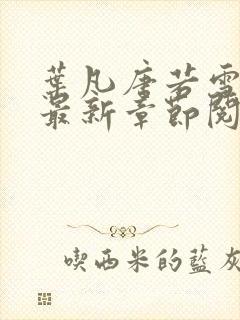 葉凡唐若雪
最新章節閱
喫西米的藍灰